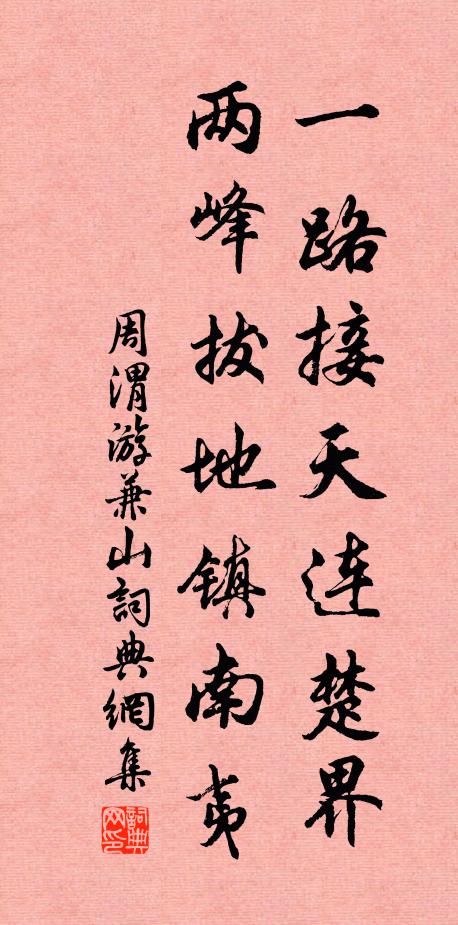 一路接天连楚界
两峰拔地镇南夷
周渭游兼山詞典網集
詞典网印